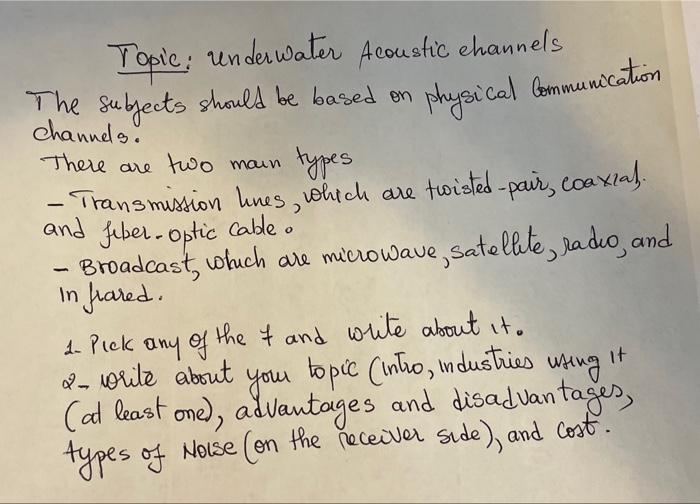 Topic: underwater Acoustic channels
The subjects should be based on physical Communication
channels.
There are two main types
- Transmission lines, which are twisted-pair, coaxial.
and fiber-optic cable.
- Broadcast, which are microwave, satellite, radio, and
Infrared.
1- Pick any of the 7 and write about it.
2- write about your topic (intro, industries using it
(at least one), advantages and disadvantages,
types of Noise (on the receiver side), and cost.